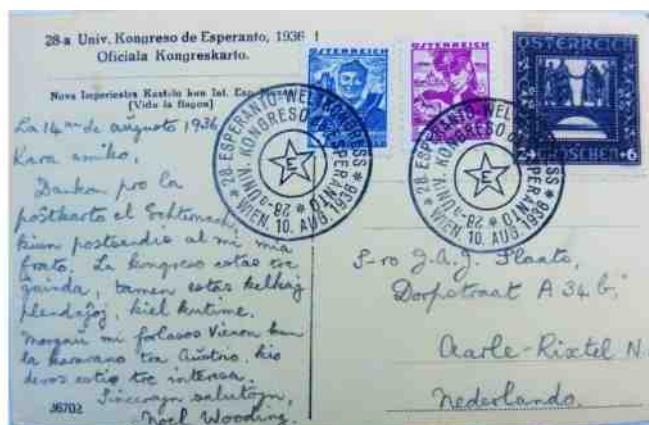 28-a Univ. Kongreso de Esperanto, 1936 !
Oficiala Kongreskarto.
Nova Imperiestra Kastelo kun Int. Esp.-Muzeo
(Vidu la flagon)
La 14an de aŭgusto 1936
Kara amiko,
Dankon pro la
postkarto el Echternach,
kiun postsendis al mi mia
frato. La kongreso estas tre
ĝuinda, tamen estas kelkaj
plendaĵoj, kiel kutime.
Morgaŭ mi forlasos Vienon kun
la karavano tra Aŭstrio, kio
devos esti tre interesa.
Sincerajn salutojn,
Noel Wooding.
36702
ÖSTERREICH
ÖSTERREICH
ÖSTERREICH
24 GROSCHEN +6
* 28. ESPERANTO-WELTKONGRESS *
28-a UNIV. KONGRESO de ESPERANTO
WIEN, 10. AUG. 1936
E
* 28. ESPERANTO-WELTKONGRESS *
28-a UNIV. KONGRESO de ESPERANTO
WIEN, 10. AUG. 1936
E
S-ro J.A.J. Plaats,
Dorpstraat A 34 b,
Aarle-Rixtel N.
Nederlando.